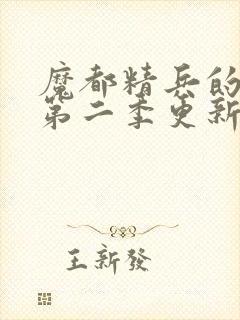 魔都精兵的
第二季更新
王新發